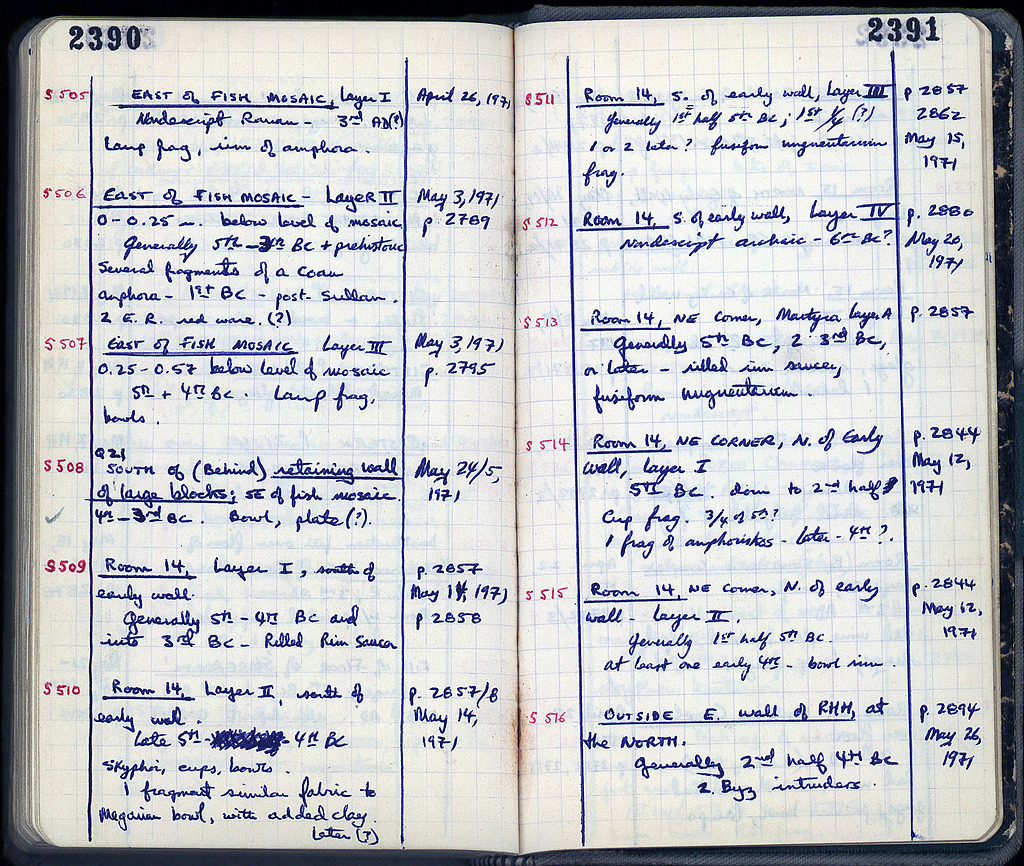 2390
S 505 EAST of FISH MOSAIC, Layer I April 26, 1971
Nondescript Roman - 3rd AD(?)
Lamp frag, rim of amphora.
S 506 EAST OF FISH MOSAIC - LAYER II May 3, 1971
0-0.25 m. below level of mosaic p. 2789
Generally 5th - 3rd BC + prehistoric
Several fragments of a Coan
amphora - 1st BC - post-Sullan.
2 E. R. red ware. (?)
S 507 EAST OF FISH MOSAIC Layer III May 3, 1971
0.25-0.57 below level of mosaic p. 2795
5th + 4th BC. Lamp frag,
bowls.
Q21
S 508 SOUTH of (Behind) retaining wall May 24/5,
of large blocks; SE of fish mosaic. 1971
4th - 3rd BC. Bowl, plate (?).
S 509 Room 14, Layer I, south of p. 2857
early wall. May 14, 1971
Generally 5th - 4th BC and p 2858
into 3rd BC - Rilled Rim Saucer
S 510 Room 14, Layer II, south of p. 2857/8
early wall. May 14,
Late 5th - 4th BC 1971
Skyphoi, cups, bowls.
1 fragment similar fabric to
Megarian bowl, with added clay.
Later (?)
2391
S 511 Room 14, S. of early wall, Layer III p 2857
Generally 1st half 5th BC; 1st 1/4 (?) 2862
1 or 2 later? fusiform unguentarium May 15,
frag. 1971
S 512 Room 14, S. of early wall, Layer IV p. 2880
Nondescript archaic - 6th BC? May 20,
1971
S 513 Room 14, NE Corner, Martyra Layer A p. 2857
Generally 5th BC, 2 3rd BC,
or later - rilled rim saucer,
fusiform unguentarium.
S 514 Room 14, NE CORNER, N. of Early p. 2844
Wall, Layer I May 12,
5th BC. down to 2nd half 1971
Cup frag. 3/4 of 5th?
1 frag of amphoriskos - later - 4th?.
S 515 Room 14, NE Corner, N. of early p. 2844
wall - Layer II. May 12,
Generally 1st half 5th BC. 1971
at least one early 4th - bowl rim.
S 516 OUTSIDE E. wall of RHH, at p. 2894
the NORTH. May 26,
Generally 2nd half 4th BC 1971
2 Byz intruders.